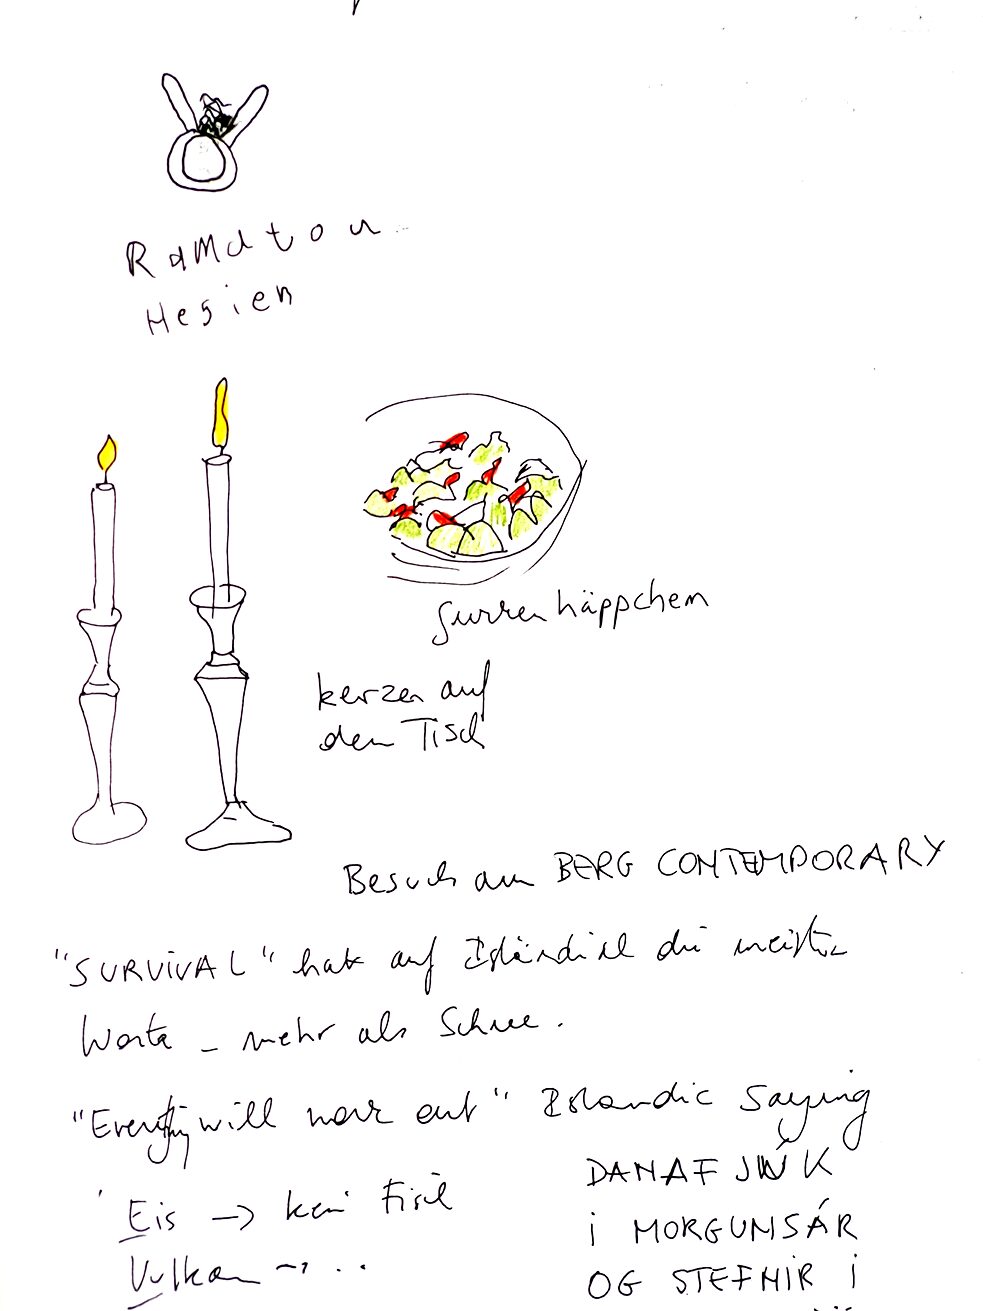 Ramatou
Hesien
Gurkenhäppchen
kerzen auf
dem Tisch
Besuch am BERG CONTEMPORARY
"SURViVAL" hat auf Isländisch die meisten
Worte – mehr als Schnee.
"Everything will work out" Islandic saying
Eis -> kein Fisch
Vulkan -> ..
DANAFJÚK
i MORGUNSÁR
OG STEFNIR Í